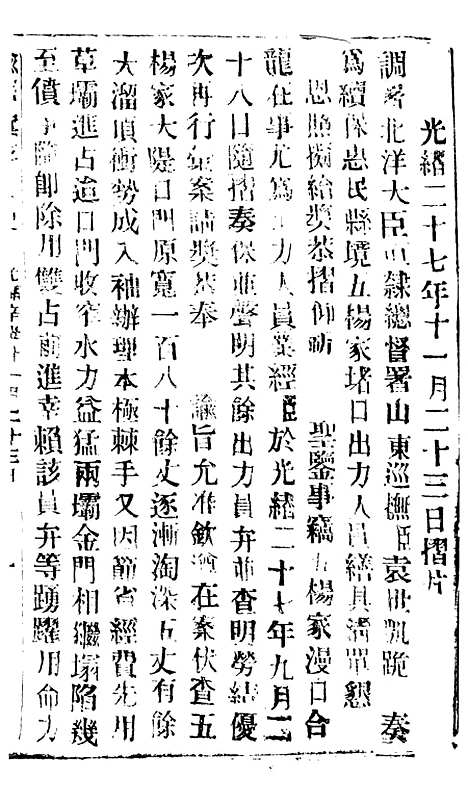 光緒二十七年十一月二十三日摺片
調署北洋大臣直隸總督署山東巡撫臣袁世凱跪　奏
爲續保惠民縣境五楊家堵口出力人員繕具清單懇
恩照擬給獎恭摺仰祈　聖鑒事竊五楊家漫口合
龍在事尤爲出力人員業經臣於光緒二十七年九月二
十八日隨摺奏保並聲明其餘出力員弁並查明勞績優
次再行彙案請獎恭奉　諭旨允准欽遵在案伏查五
楊家大隄口門原寬一百八十餘丈逐漸淘深五丈有餘
大溜頂衝勢成入袖辦理本極棘手又因節省經費先用
草壩進占迨口門收窄水力益猛兩壩金門相繼塌陷幾
至僨事隨卽除用雙占前進幸賴該員弁等踴躍用命力